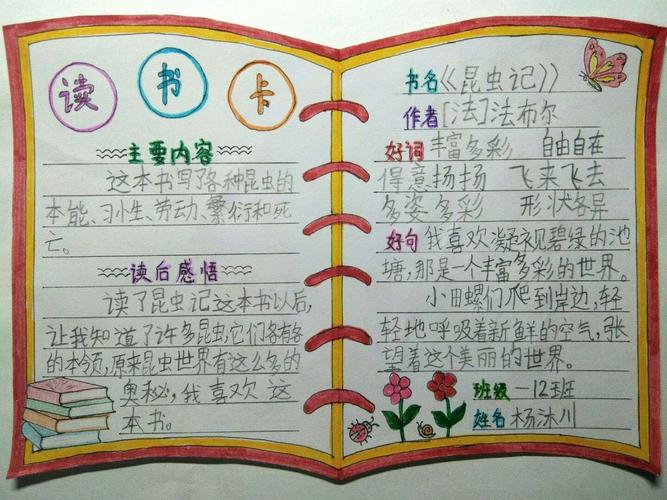 读书卡
主要内容
这本书写了各种昆虫的
本能、习小生、劳动、繁衍和死
亡。
读后感悟
读了昆虫记这本书以后,
让我知道了许多昆虫,它们各有各
的本领,原来昆虫世界有这么多的
奥秘,我喜欢这
本书。
书名《昆虫记》
作者[法]法布尔
好词丰富多彩 自由自在
得意扬扬 飞来飞去
多姿多彩 形状各异
好句我喜欢凝视碧绿的池
塘,那是一个丰富多彩的世界。
小田螺们爬到岸边,轻
轻地呼吸着新鲜的空气,张
望着这个美丽的世界。
班级一12班
姓名杨沐川